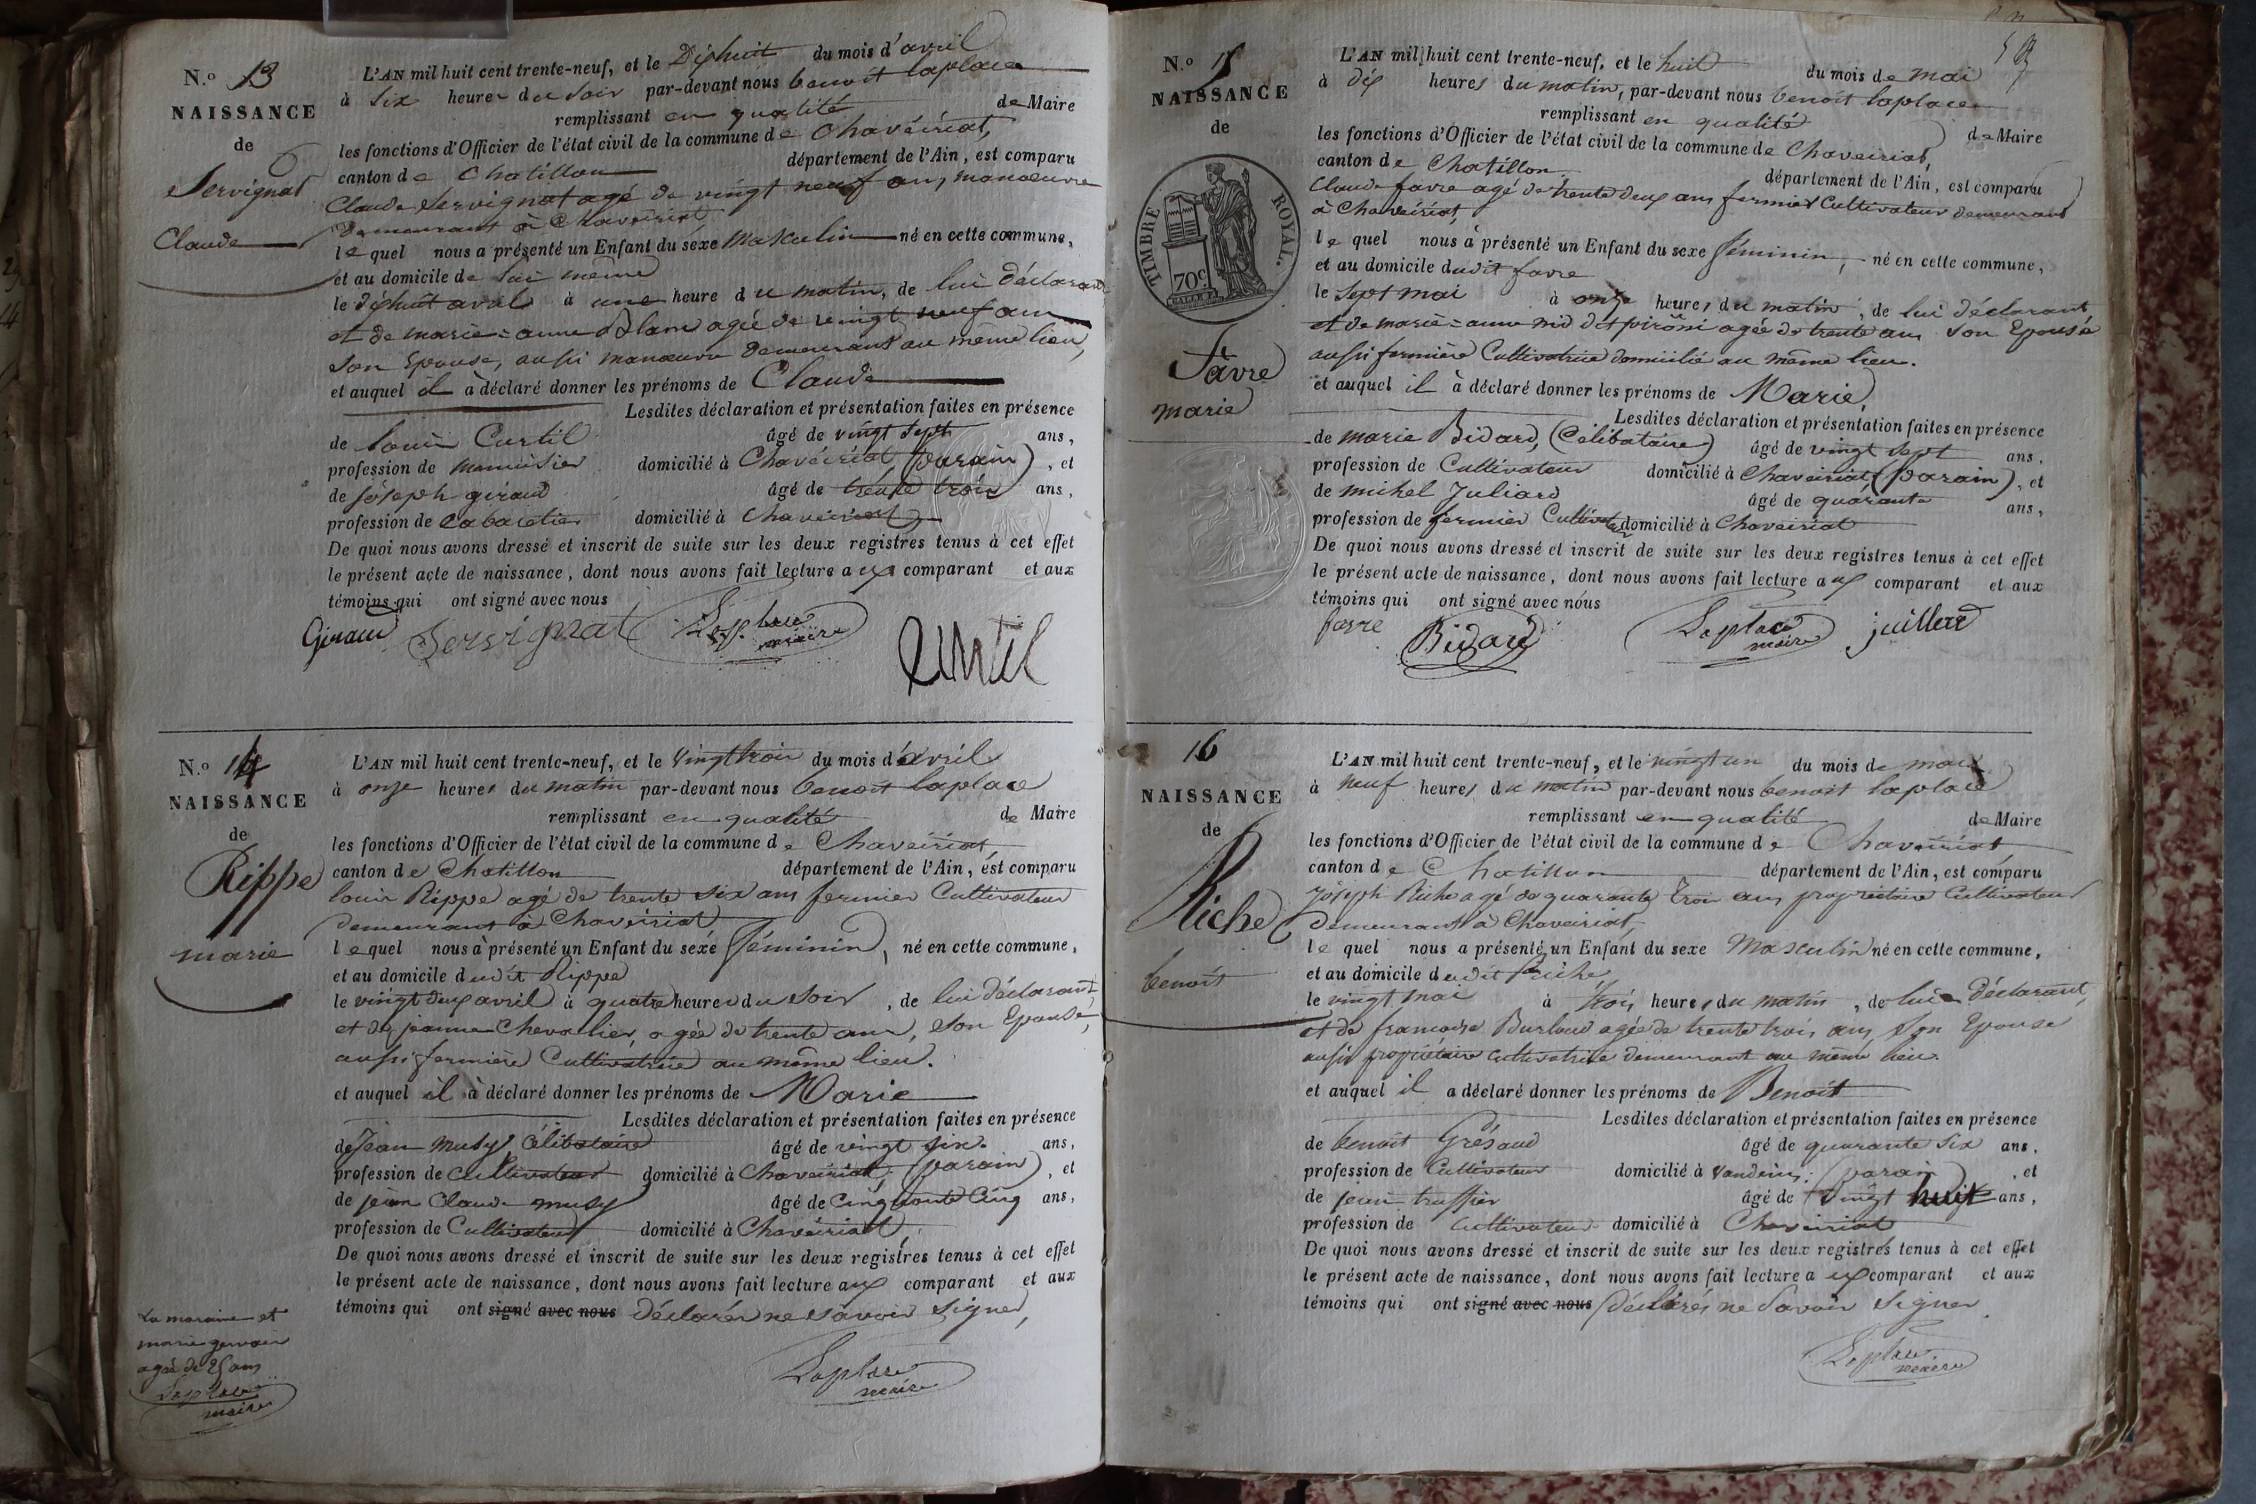 N.o 13
NAISSANCE
de
Servignat
Claude
L'AN mil huit cent trente-neuf, et le Dixhuit du mois d'avril
à six heures du soir par-devant nous benoit laplace
remplissant en qualité de Maire
les fonctions d'Officier de l'état civil de la commune de Chavéiriat,
canton de Chatillon département de l'Ain, est comparu
Claude Servignat agé de vingt neuf ans, manœuvre
demeurant à Chaveiriat,
lequel nous a présenté un Enfant du sexe Masculin né en cette commune,
et au domicile de lui même
le dixhuit avril à une heure du matin, de lui déclarant
et de marie=anne agée de vingt neuf ans
son Epouse, aussi manœuvre demeurant au même lieu,
et auquel il à déclaré donner les prénoms de Claude
Lesdites déclaration et présentation faites en présence
de louis Curtil âgé de vingt sept ans,
profession de menuisier domicilié à Chavéiriat (parain), et
de joseph giraud âgé de trente trois ans,
profession de Cabaretier domicilié à Chaveiriat
De quoi nous avons dressé et inscrit de suite sur les deux registres tenus à cet effet
le présent acte de naissance, dont nous avons fait lecture aux comparant et aux
témoins qui ont signé avec nous
Giraud Servignat Laplace maire Curtil
N.o 14
NAISSANCE
de
Rippe
marie
L'AN mil huit cent trente-neuf, et le vingt trois du mois d'avril
à onze heures du matin par-devant nous benoit laplace
remplissant en qualité de Maire
les fonctions d'Officier de l'état civil de la commune de Chaveiriat,
canton de Chatillon département de l'Ain, est comparu
louis Rippe agé de trente six ans fermier Cultivateur
demeurant à Chaveiriat
lequel nous à présenté un Enfant du sexe féminin, né en cette commune,
et au domicile dudit Rippe
le vingt deux avril à quatre heures du soir, de lui déclarant
et de jeanne Chevalier, agée de trente ans, son Epouse,
aussi fermière Cultivatrice au même lieu.
et auquel il à déclaré donner les prénoms de Marie
Lesdites déclaration et présentation faites en présence
de Jean musy Célibataire âgé de vingt six. ans,
profession de Cultivateur domicilié à Chaveiriat, (parain), et
de jean Claude musy âgé de Cinquante Cinq ans,
profession de Cultivateur domicilié à Chaveiriat,
De quoi nous avons dressé et inscrit de suite sur les deux registres tenus à cet effet
le présent acte de naissance, dont nous avons fait lecture aux comparant et aux
témoins qui ont signé avec nous déclarés ne savoir signer,
La maraine et
marie gervais
agée de 25 ans
Laplace
maire
Laplace
maire
N.o 15
NAISSANCE
de
TIMBRE ROYAL.
70c
favre
marie
L'AN mil huit cent trente-neuf, et le huit du mois de mai
à dix heures du matin, par-devant nous benoit laplace
remplissant en qualité de Maire
les fonctions d'Officier de l'état civil de la commune de Chaveiriat,
canton de Chatillon département de l'Ain, est comparu
Claude favre agé de trente deux ans fermier Cultivateur demeurant
à Chaveiriat,
lequel nous à présenté un Enfant du sexe féminin, né en cette commune,
et au domicile dudit favre
le sept mai à onze heures du matin, de lui déclarant
et de marie=anne agée de trente ans son Epouse
aussi fermière Cultivatrice domicilié au même lieu.
et auquel il à déclaré donner les prénoms de Marie,
Lesdites déclaration et présentation faites en présence
de marie Bidard, (Célibataire) âgé de vingt sept ans,
profession de Cultivateur domicilié à Chaveiriat (parain), et
de michel Juliard âgé de quarante ans,
profession de fermier Cultivateur domicilié à Chaveiriat
De quoi nous avons dressé et inscrit de suite sur les deux registres tenus à cet effet
le présent acte de naissance, dont nous avons fait lecture aux comparant et aux
témoins qui ont signé avec nous
favre Bidard Laplace maire juillard
16
NAISSANCE
de
Riche
benoit
L'AN mil huit cent trente-neuf, et le vingt un du mois de mai
à neuf heures du matin par-devant nous benoit laplace
remplissant en qualité de Maire
les fonctions d'Officier de l'état civil de la commune de Chaveiriat
canton de Chatillon département de l'Ain, est comparu
joseph Riche agé de quarante trois ans propriétaire Cultivateur
demeurant à Chaveiriat,
lequel nous a présenté un Enfant du sexe Masculin né en cette commune,
et au domicile dudit Riche,
le vingt mai à trois heures du matin, de lui déclarant,
et de francoise Burloud agée de trente trois ans, son Epouse
aussi propriétaire cultivatrice demeurant au même lieu.
et auquel il a déclaré donner les prénoms de Benoit
Lesdites déclaration et présentation faites en présence
de benoit Grésaud âgé de quarante six ans,
profession de Cultivateur domicilié à Vandeins. (parain), et
de jean truffier âgé de Vingt huit ans,
profession de Cultivateur domicilié à Chaveiriat
De quoi nous avons dressé et inscrit de suite sur les deux registres tenus à cet effet
le présent acte de naissance, dont nous avons fait lecture aux comparant et aux
témoins qui ont signé avec nous déclarés ne Savoir signer
Laplace
maire